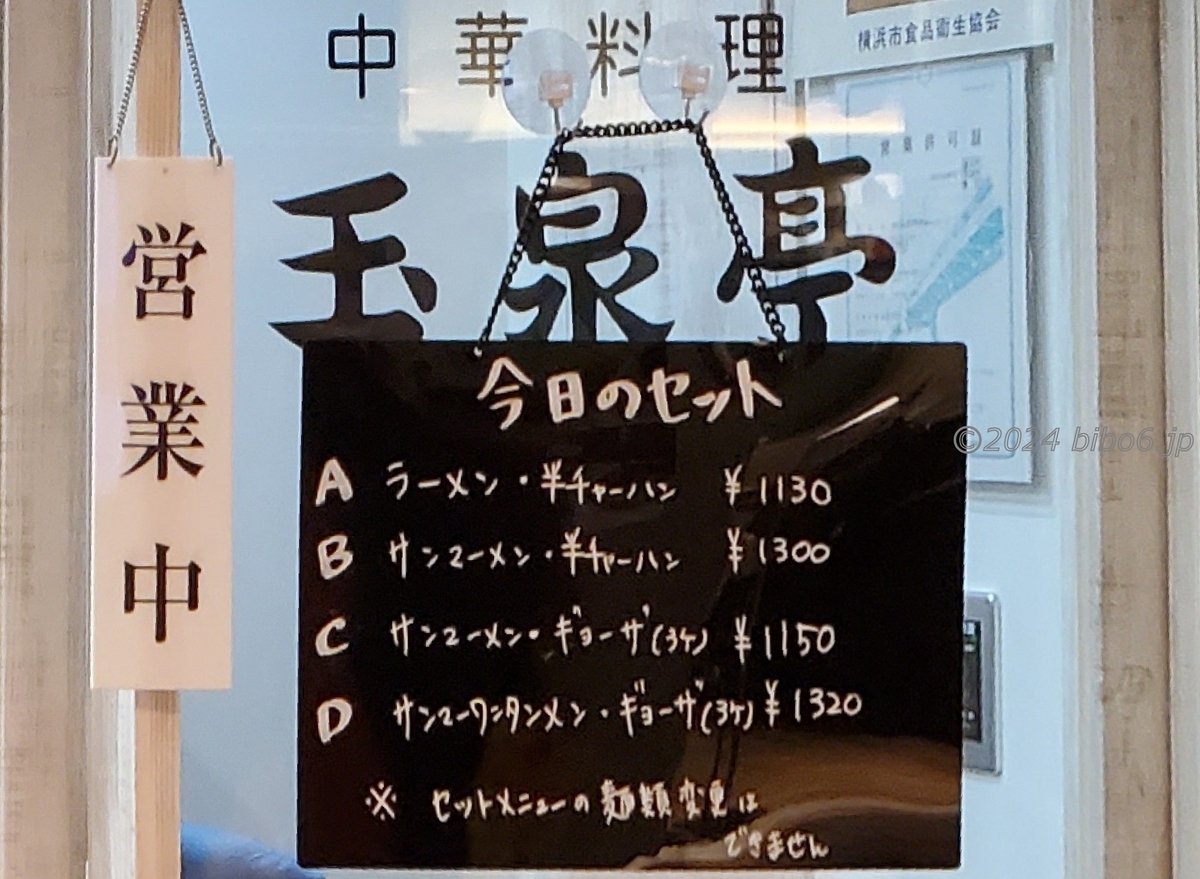 中華料理
横浜市食品衛生協会
営業許可証
玉泉亭
営業中
今日のセット
A ラーメン・半チャーハン ¥1130
B サンマーメン・半チャーハン ¥1300
C サンマーメン・ギョーザ(3ケ) ¥1150
D サンマーワンタンメン・ギョーザ(3ケ) ¥1320
※ セットメニューの麺類変更は
できません
©2024 bibo6.jp